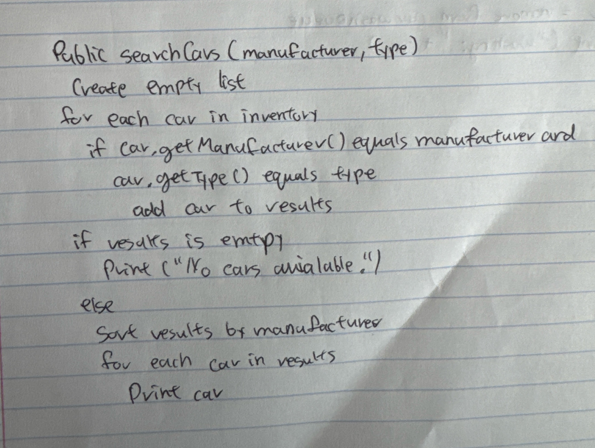 Public searchCars (manufacturer, type)
Create empty list
for each car in inventory
if car.getManufacturer() equals manufacturer and
car.getType() equals type
add car to results
if results is emtpy
Print ("No cars avialable.")
else
Sort results by manufacturer
for each car in results
Print car